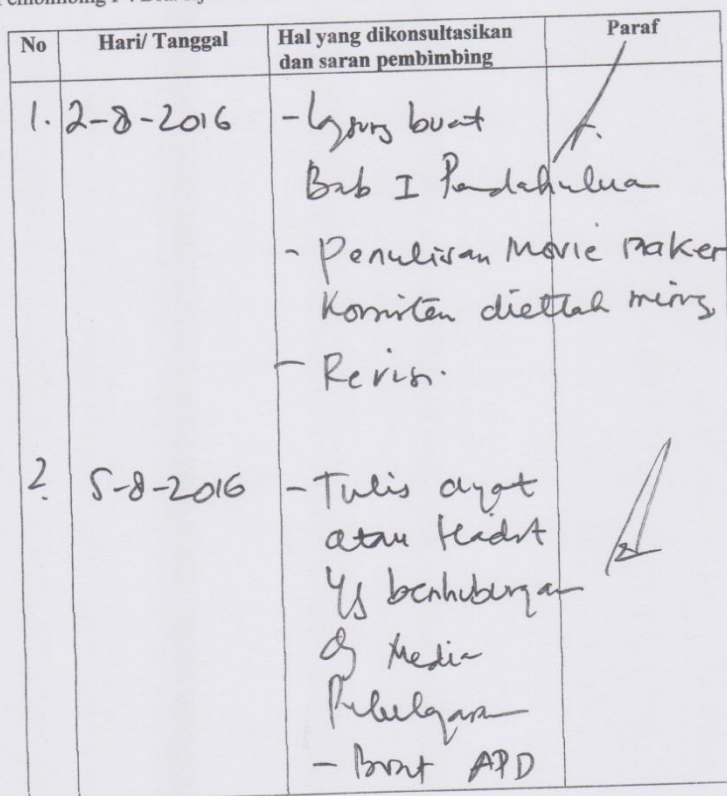 No Hari/ Tanggal Hal yang dikonsultasikan Paraf
dan saran pembimbing
1. 2-8-2016 - buat
Bab I Pendahulua
- Penulisan Movie maker
Konsisten dicetak miring
- Revisi.
2. 5-8-2016 - Tulis ayat
atau Hadist
yg berhubungan
dg Media
- Buat APD